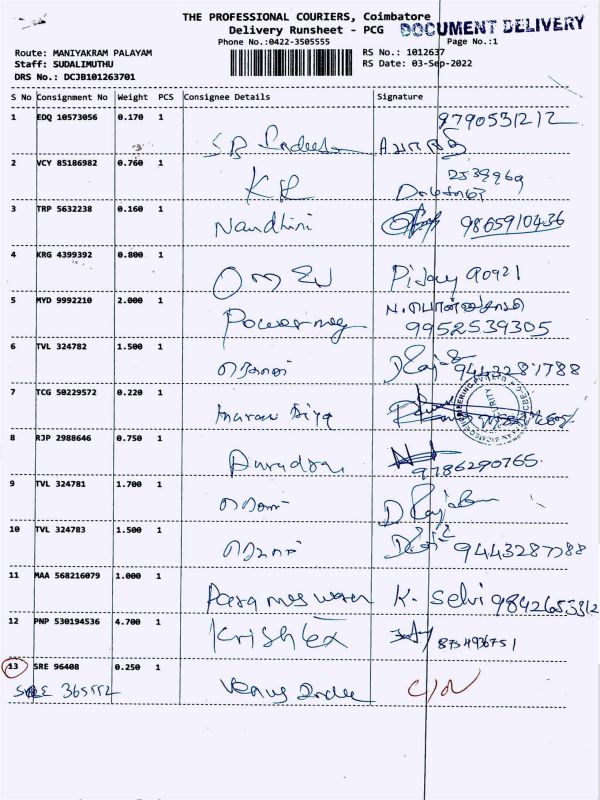 THE PROFESSIONAL COURIERS, Coimbatore
Delivery Runsheet - PCG
DOCUMENT DELIVERY
Phone No.:0422-3505555
Page No.:1
Route: MANIYAKRAM PALAYAM
RS No.: 1012637
Staff: SUDALIMUTHU
RS Date: 03-Sep-2022
DRS No.: DCJB101263701
S No Consignment No Weight PCS Consignee Details Signature
1 EDQ 10573056 0.170 1
9790531212
SB
2 VCY 85186982 0.760 1
KR
2539969
3 TRP 5632238 0.160 1
Nandhini 9865910436
4 KRG 4399392 0.800 1
90921
5 MYD 9992210 2.000 1
Powermag 9952539305
6 TVL 324782 1.500 1
9443287788
7 TCG 50229572 0.220 1
8 RJP 2988646 0.750 1
9786290765
9 TVL 324781 1.700 1
10 TVL 324783 1.500 1
9443287788
11 MAA 568216079 1.000 1
Parameswaran K. Selvi 9842653312
12 PNP 530194536 4.700 1
Krishtex 8754936751
13 SRE 96408 0.250 1
SRE 365552 Venus C/N